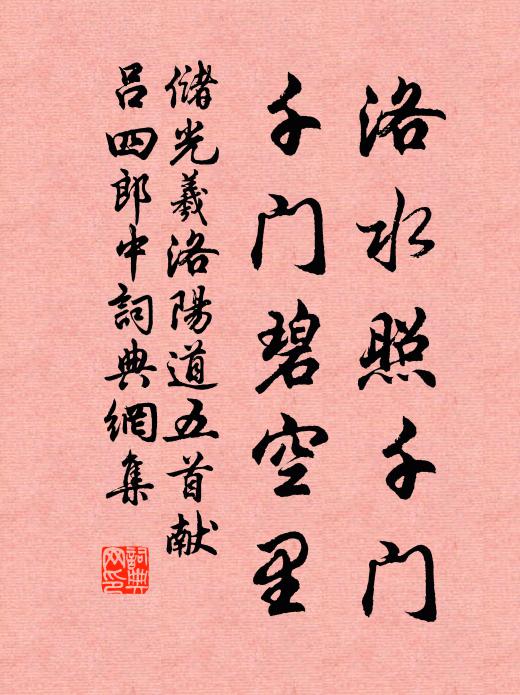 洛水照千门
千门碧空里
储光羲洛陽道五首献
吕四郎中詞典網集
詞典
网印